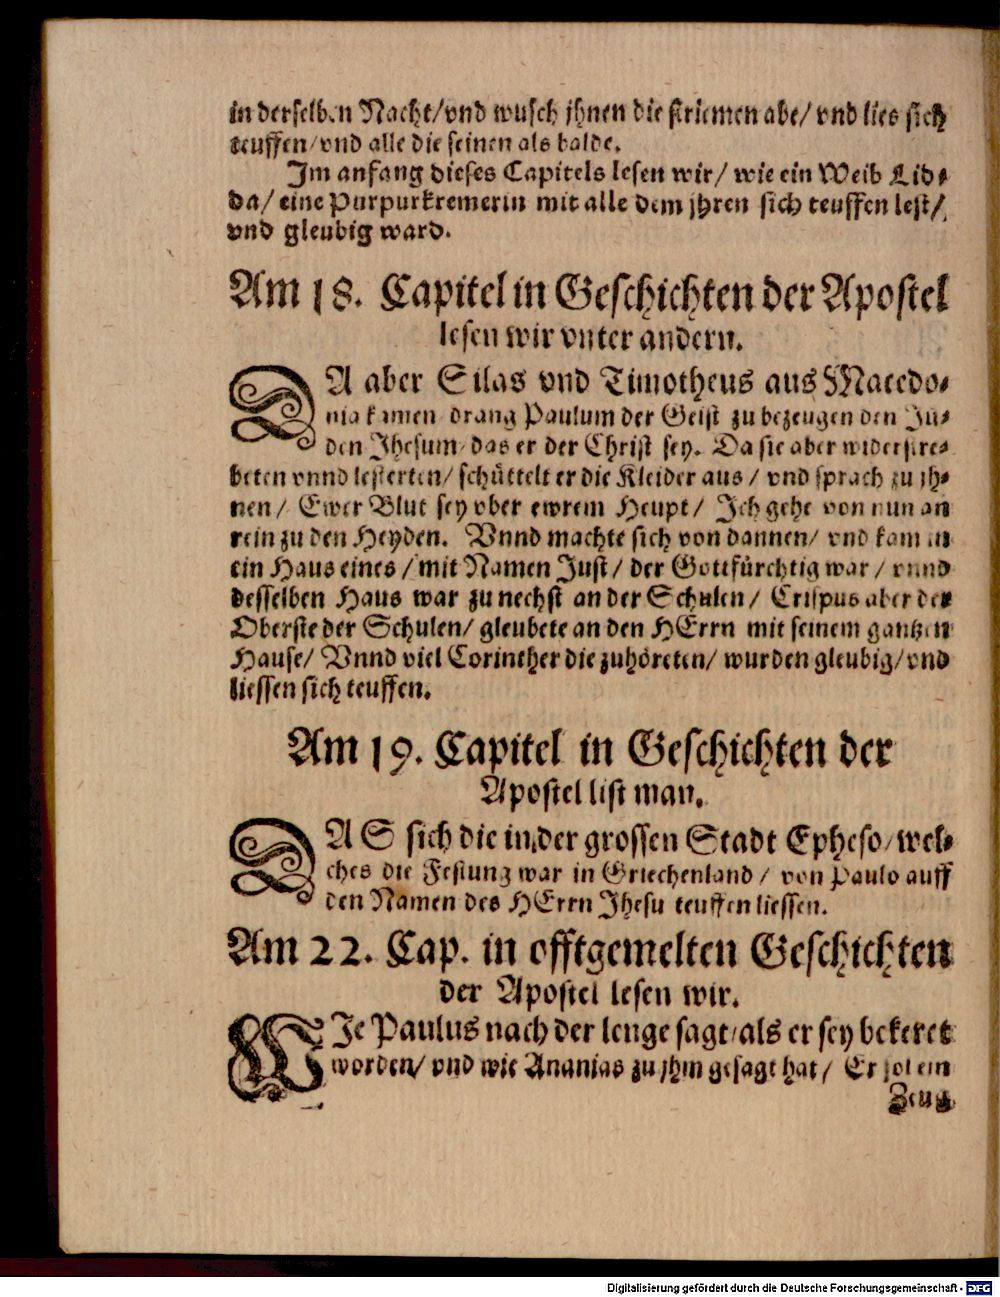 in derselben Nacht/vnd wusch jhnen die striemen abe/ vnd lies sich
teuffen/vnd alle die seinen als balde.
Im anfang dieses Capitels lesen wir/ wie ein Weib Lid-
da/ eine Purpurkremerin mit alle dem jhren sich teuffen lest/
vnd gleubig ward.
Am 18. Capitel in Geschichten der Apostel
lesen wir vnter andern.
DA aber Silas vnd Timotheus aus Macedo-
nia kamen drang Paulum der Geist zu bezeugen den Jü-
den Jhesum/ das er der Christ sey. Da sie aber widerstre-
beten vnnd lesterten/ schüttelt er die Kleider aus/ vnd sprach zu jh-
nen/ Ewer Blut sey vber ewrem Heupt/ Ich gehe von nun an
rein zu den Heyden. Vnnd machte sich von dannen/ vnd kam in
ein Haus eines/ mit Namen Just/ der Gottfürchtig war/ vnnd
desselben Haus war zu nechst an der Schulen/ Crispus aber der
Oberste der Schulen/ gleubete an den HErrn mit seinem gantzen
Hause/ Vnnd viel Corinther die zuhöreten/ wurden gleubig/vnd
liessen sich teuffen.
Am 19. Capitel in Geschichten der
Apostel list man.
DAS sich die in der grossen Stadt Epheso/wel-
ches die Festung war in Griechenland/ von Paulo auff
den Namen des HErrn Jhesu teuffen liessen.
Am 22. Cap. in offtgemelten Geschichten
der Apostel lesen wir.
WJe Paulus nach der lenge sagt/als er sey bekeret
worden/ vnd wie Ananias zu jhm gesagt hat/ Er sol ein
Zeug
Digitalisierung gefördert durch die Deutsche Forschungsgemeinschaft - DFG